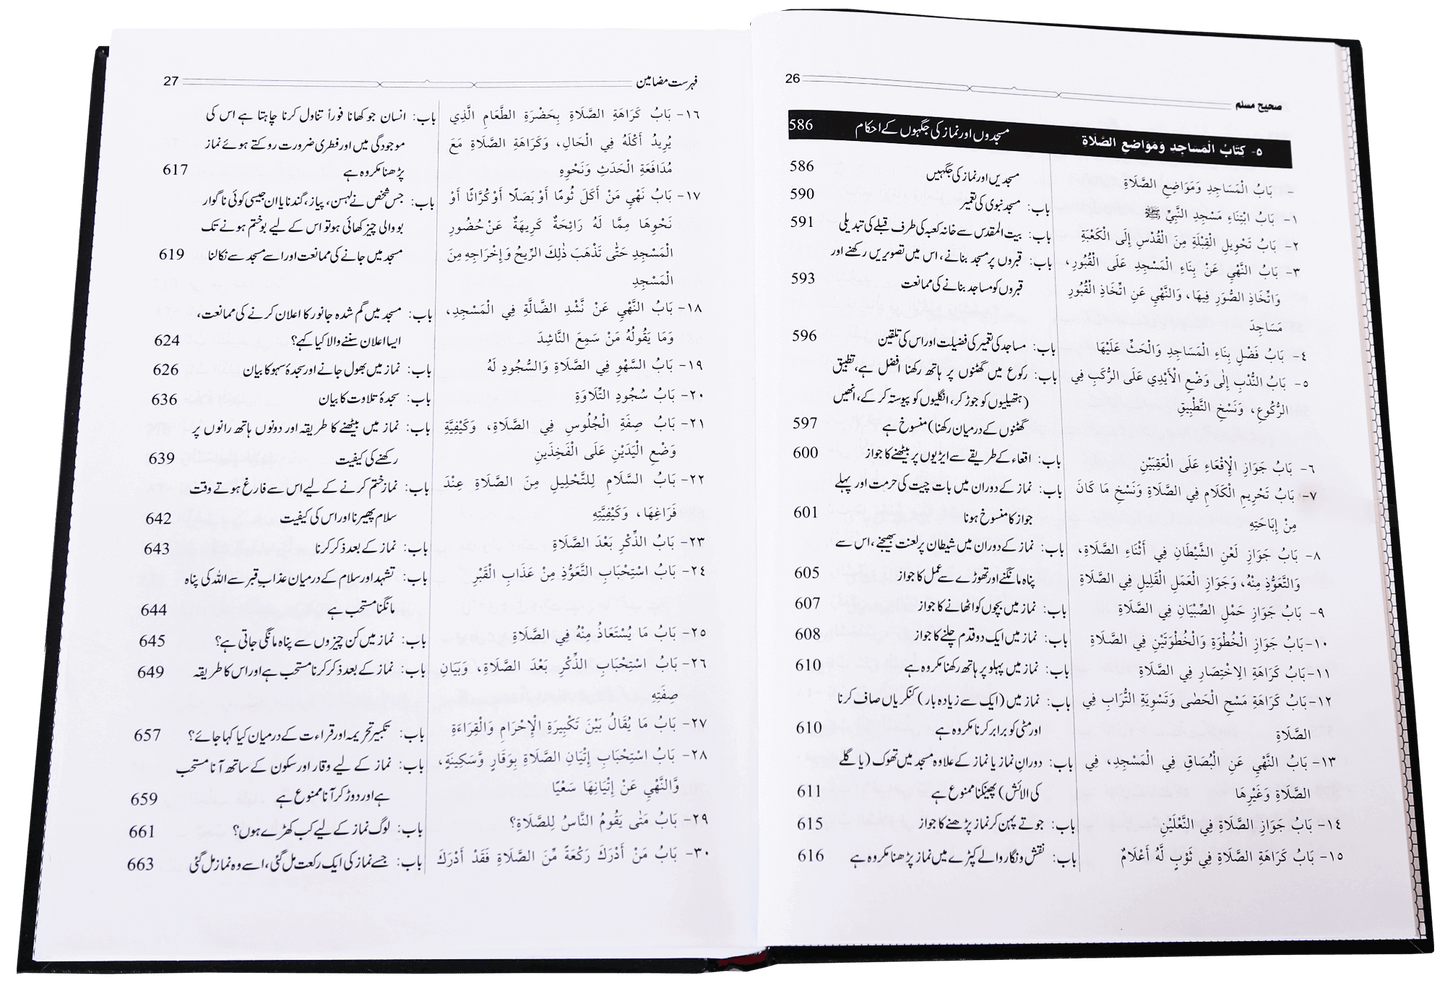 26
صحيح مسلم
٥- كتاب المساجد ومواضع الصلاة مسجدوں اور نماز کی جگہوں کے احکام 586
- بَابُ الْمَسَاجِدِ وَمَوَاضِعِ الصَّلَاةِ مسجدیں اور نماز کی جگہیں 586
١- بَابُ ابْتِنَاءِ مَسْجِدِ النَّبِيِّ ﷺ باب: مسجد نبوی کی تعمیر 590
٢- بَابُ تَحْوِيلِ الْقِبْلَةِ مِنَ الْقُدْسِ إِلَى الْكَعْبَةِ باب: بیت المقدس سے خانہ کعبہ کی طرف قبلے کی تبدیلی 591
٣- بَابُ النَّهْيِ عَنْ بِنَاءِ الْمَسْجِدِ عَلَى الْقُبُورِ، باب: قبروں پر مسجد بنانے، اس میں تصویریں رکھنے اور
وَاتِّخَاذِ الصُّوَرِ فِيهَا، وَالنَّهْيِ عَنِ اتِّخَاذِ الْقُبُورِ قبروں کو مساجد بنانے کی ممانعت 593
مَسَاجِدَ
٤- بَابُ فَضْلِ بِنَاءِ الْمَسَاجِدِ وَالْحَثِّ عَلَيْهَا باب: مساجد کی تعمیر کی فضیلت اور اس کی تلقین 596
٥- بَابُ النَّدْبِ إِلَى وَضْعِ الْأَيْدِي عَلَى الرُّكَبِ فِي باب: رکوع میں گھٹنوں پر ہاتھ رکھنا افضل ہے، تطبیق
الرُّكُوعِ، وَنَسْخِ التَّطْبِيقِ (ہتھیلیوں کو جوڑ کر، انگلیوں کو پیوستہ کر کے، انھیں
گھٹنوں کے درمیان رکھنا) منسوخ ہے 597
٦- بَابُ جَوَازِ الْإِقْعَاءِ عَلَى الْعَقِبَيْنِ باب: اقعاء کے طریقے سے ایڑیوں پر بیٹھنے کا جواز 600
٧- بَابُ تَحْرِيمِ الْكَلَامِ فِي الصَّلَاةِ وَنَسْخِ مَا كَانَ باب: نماز کے دوران میں بات چیت کی حرمت اور پہلے
مِنْ إِبَاحَتِهِ جواز کا منسوخ ہونا 601
٨- بَابُ جَوَازِ لَعْنِ الشَّيْطَانِ فِي أَثْنَاءِ الصَّلَاةِ، باب: نماز کے دوران میں شیطان پر لعنت بھیجنے، اس سے
وَالتَّعَوُّذِ مِنْهُ، وَجَوَازِ الْعَمَلِ الْقَلِيلِ فِي الصَّلَاةِ پناہ مانگنے اور تھوڑے سے عمل کا جواز 605
٩- بَابُ جَوَازِ حَمْلِ الصِّبْيَانِ فِي الصَّلَاةِ باب: نماز میں بچوں کو اٹھانے کا جواز 607
١٠- بَابُ جَوَازِ الْخُطْوَةِ وَالْخُطْوَتَيْنِ فِي الصَّلَاةِ باب: نماز میں ایک دو قدم چلنے کا جواز 608
١١- بَابُ كَرَاهَةِ الِاخْتِصَارِ فِي الصَّلَاةِ باب: نماز میں پہلو پر ہاتھ رکھنا مکروہ ہے 610
١٢- بَابُ كَرَاهَةِ مَسْحِ الْحَصٰى وَتَسْوِيَةِ التُّرَابِ فِي باب: نماز میں (ایک سے زیادہ بار) کنکریاں صاف کرنا
الصَّلَاةِ اور مٹی کو برابر کرنا مکروہ ہے 610
١٣- بَابُ النَّهْيِ عَنِ الْبُصَاقِ فِي الْمَسْجِدِ، فِي باب: دوران نماز یا نماز کے علاوہ مسجد میں تھوک (یا گلے
الصَّلَاةِ وَغَيْرِهَا کی آلائش) پھینکنا ممنوع ہے 611
١٤- بَابُ جَوَازِ الصَّلَاةِ فِي النَّعْلَيْنِ باب: جوتے پہن کر نماز پڑھنے کا جواز 615
١٥- بَابُ كَرَاهَةِ الصَّلَاةِ فِي ثَوْبٍ لَّهُ أَعْلَامٌ باب: نقش و نگار والے کپڑے میں نماز پڑھنا مکروہ ہے 616
فہرست مضامین
27
١٦- بَابُ كَرَاهَةِ الصَّلَاةِ بِحَضْرَةِ الطَّعَامِ الَّذِي باب: انسان جو کھانا فوراً تناول کرنا چاہتا ہے اس کی
يُرِيدُ أَكْلَهُ فِي الْحَالِ، وَكَرَاهَةِ الصَّلَاةِ مَعَ موجودگی میں اور فطری ضرورت روکتے ہوئے نماز
مُدَافَعَةِ الْحَدَثِ وَنَحْوِهِ پڑھنا مکروہ ہے 617
١٧- بَابُ نَهْيِ مَنْ أَكَلَ ثُومًا أَوْ بَصَلًا أَوْ كُرَّاثًا أَوْ باب: جس شخص نے لہسن، پیاز، گندنا یا ان جیسی کوئی ناگوار
نَحْوِهَا مِمَّا لَهُ رَائِحَةٌ كَرِيهَةٌ عَنْ حُضُورِ بو والی چیز کھائی ہو تو اس کے لیے بو ختم ہونے تک
الْمَسْجِدِ حَتّٰى تَذْهَبَ ذٰلِكَ الرِّيحُ وَإِخْرَاجِهِ مِنَ مسجد میں جانے کی ممانعت اور اسے مسجد سے نکالنا 619
الْمَسْجِدِ
١٨- بَابُ النَّهْيِ عَنْ نَشْدِ الضَّالَّةِ فِي الْمَسْجِدِ، باب: مسجد میں گم شدہ جانور کا اعلان کرنے کی ممانعت،
وَمَا يَقُولُهُ مَنْ سَمِعَ النَّاشِدَ ایسا اعلان سننے والا کیا کہے؟ 624
١٩- بَابُ السَّهْوِ فِي الصَّلَاةِ وَالسُّجُودِ لَهُ باب: نماز میں بھول جانے اور سجدۂ سہو کا بیان 626
٢٠- بَابُ سُجُودِ التِّلَاوَةِ باب: سجدۂ تلاوت کا بیان 636
٢١- بَابُ صِفَةِ الْجُلُوسِ فِي الصَّلَاةِ، وَكَيْفِيَّةِ باب: نماز میں بیٹھنے کا طریقہ اور دونوں ہاتھ رانوں پر
وَضْعِ الْيَدَيْنِ عَلَى الْفَخِذَيْنِ رکھنے کی کیفیت 639
٢٢- بَابُ السَّلَامِ لِلتَّحْلِيلِ مِنَ الصَّلَاةِ عِنْدَ باب: نماز ختم کرنے کے لیے اس سے فارغ ہوتے وقت
فَرَاغِهَا، وَكَيْفِيَّتِهِ سلام پھیرنا اور اس کی کیفیت 642
٢٣- بَابُ الذِّكْرِ بَعْدَ الصَّلَاةِ باب: نماز کے بعد ذکر کرنا 643
٢٤- بَابُ اسْتِحْبَابِ التَّعَوُّذِ مِنْ عَذَابِ الْقَبْرِ باب: تشہد اور سلام کے درمیان عذاب قبر سے اللہ کی پناہ
مانگنا مستحب ہے 644
٢٥- بَابُ مَا يُسْتَعَاذُ مِنْهُ فِي الصَّلَاةِ باب: نماز میں کن چیزوں سے پناہ مانگی جاتی ہے؟ 645
٢٦- بَابُ اسْتِحْبَابِ الذِّكْرِ بَعْدَ الصَّلَاةِ، وَبَيَانِ باب: نماز کے بعد ذکر کرنا مستحب ہے اور اس کا طریقہ 649
صِفَتِهِ
٢٧- بَابُ مَا يُقَالُ بَيْنَ تَكْبِيرَةِ الْإِحْرَامِ وَالْقِرَاءَةِ باب: تکبیر تحریمہ اور قراءت کے درمیان کیا کہا جائے؟ 657
٢٨- بَابُ اسْتِحْبَابِ إِتْيَانِ الصَّلَاةِ بِوَقَارٍ وَّسَكِينَةٍ، باب: نماز کے لیے وقار اور سکون کے ساتھ آنا مستحب
وَّالنَّهْيِ عَنْ إِتْيَانِهَا سَعْيًا ہے اور دوڑ کر آنا ممنوع ہے 659
٢٩- بَابُ مَتٰى يَقُومُ النَّاسُ لِلصَّلَاةِ؟ باب: لوگ نماز کے لیے کب کھڑے ہوں؟ 661
٣٠- بَابُ مَنْ أَدْرَكَ رَكْعَةً مِّنَ الصَّلَاةِ فَقَدْ أَدْرَكَ باب: جسے نماز کی ایک رکعت مل گئی، اسے وہ نماز مل گئی 663